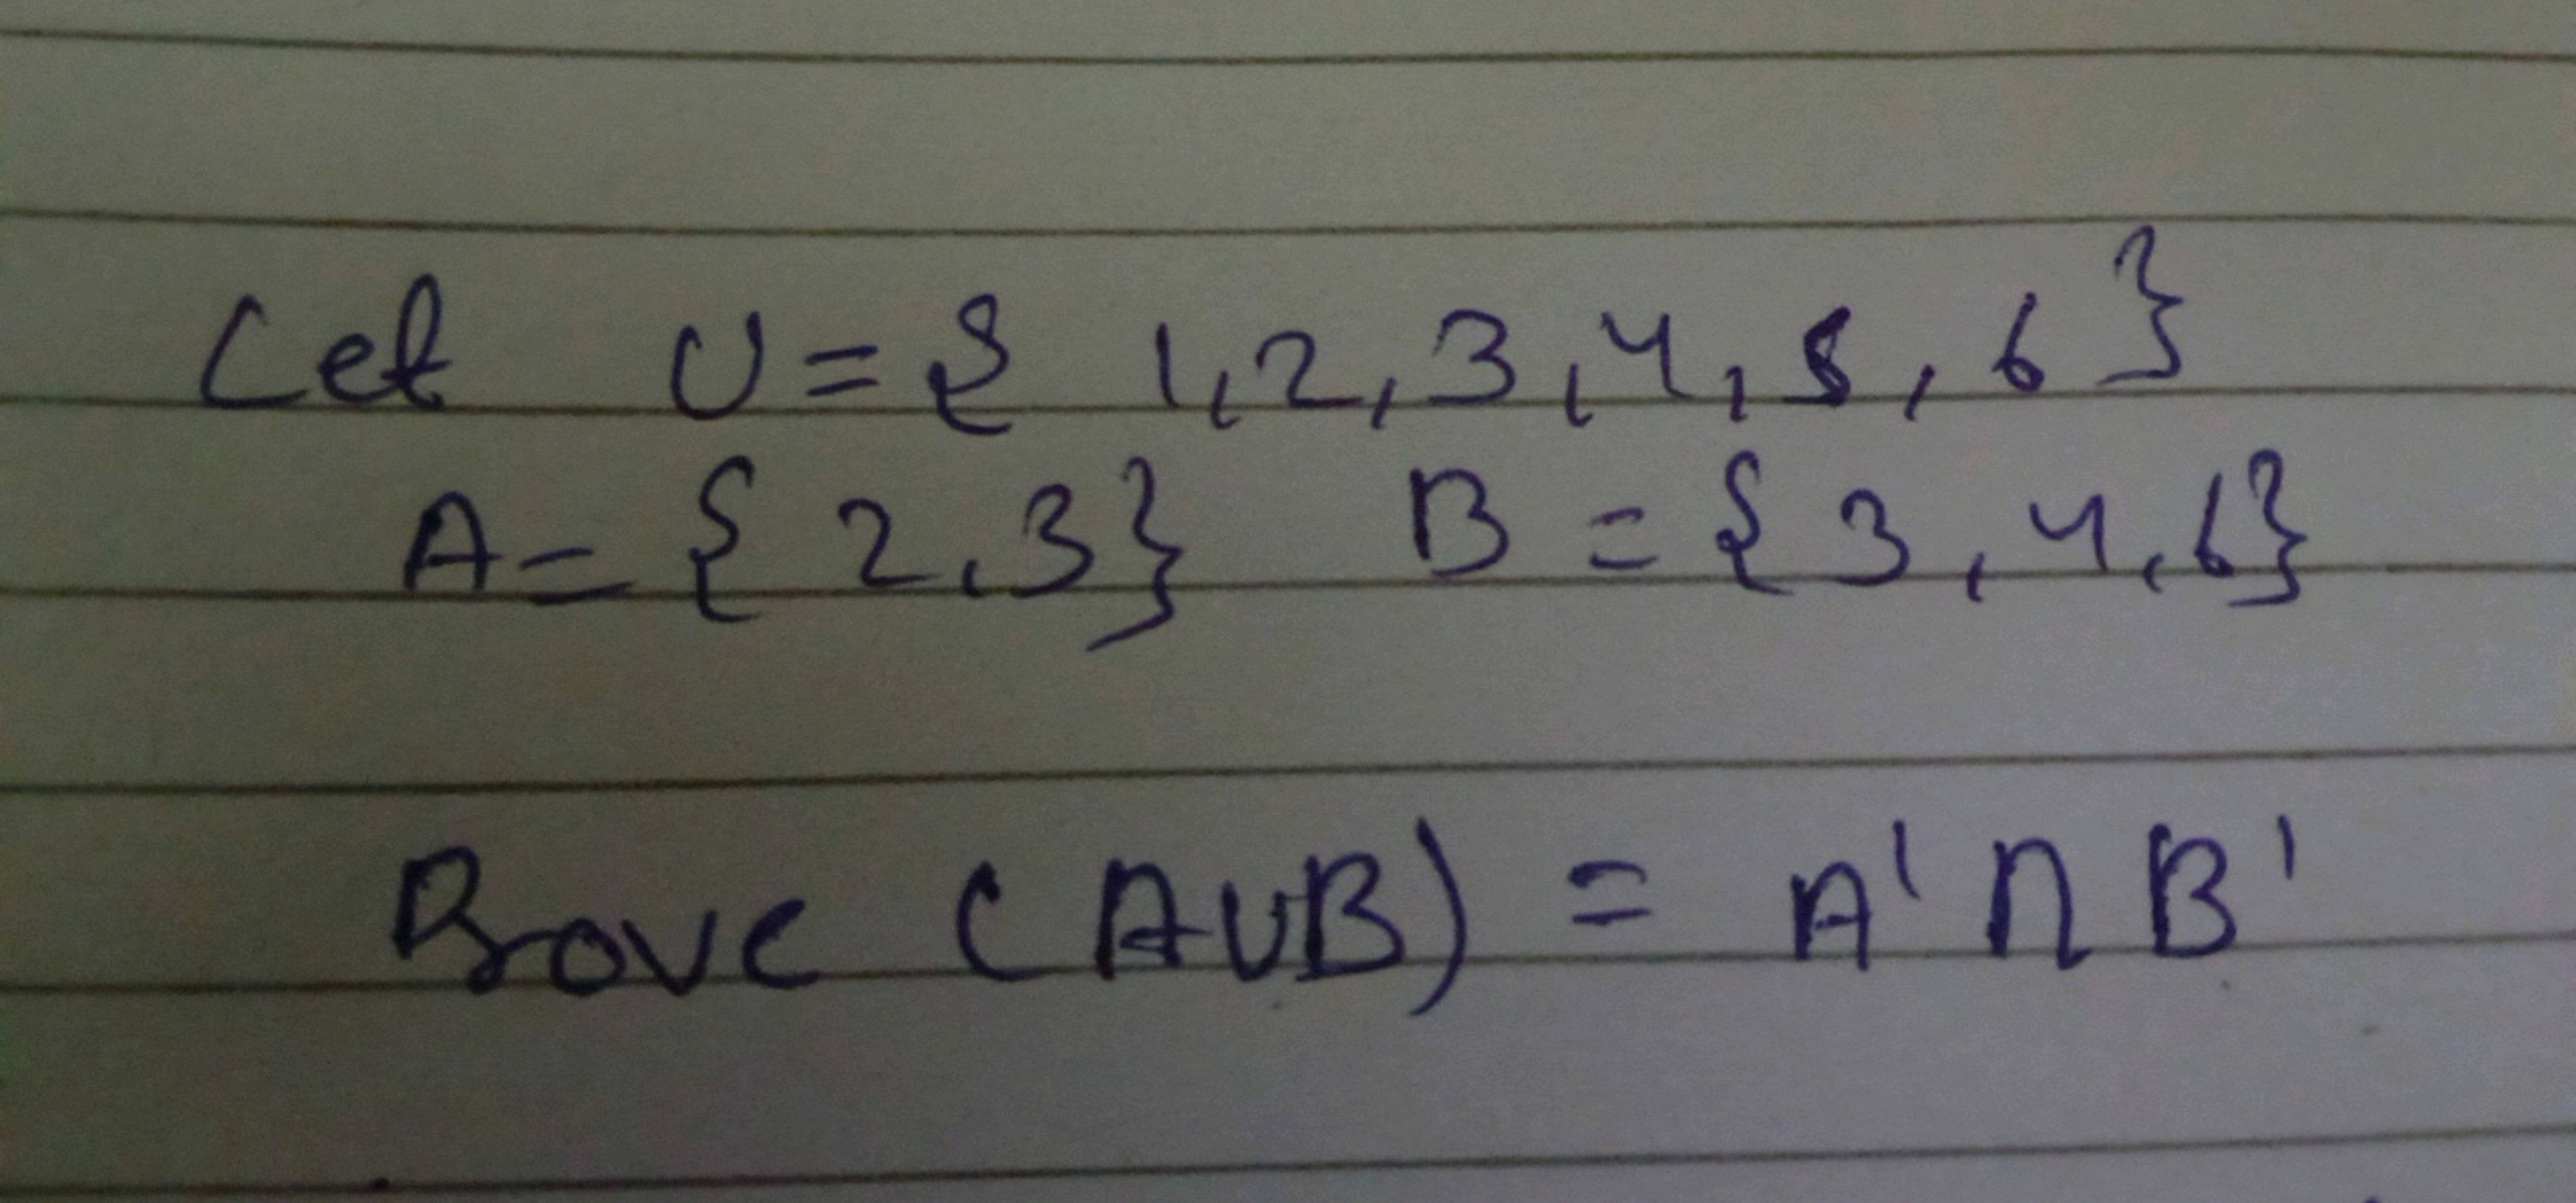 Let U = { 1, 2, 3, 4, 5, 6 }
A = { 2, 3 } B = { 3, 4, 6 }
Prove (A∪B) = A' ∩ B'